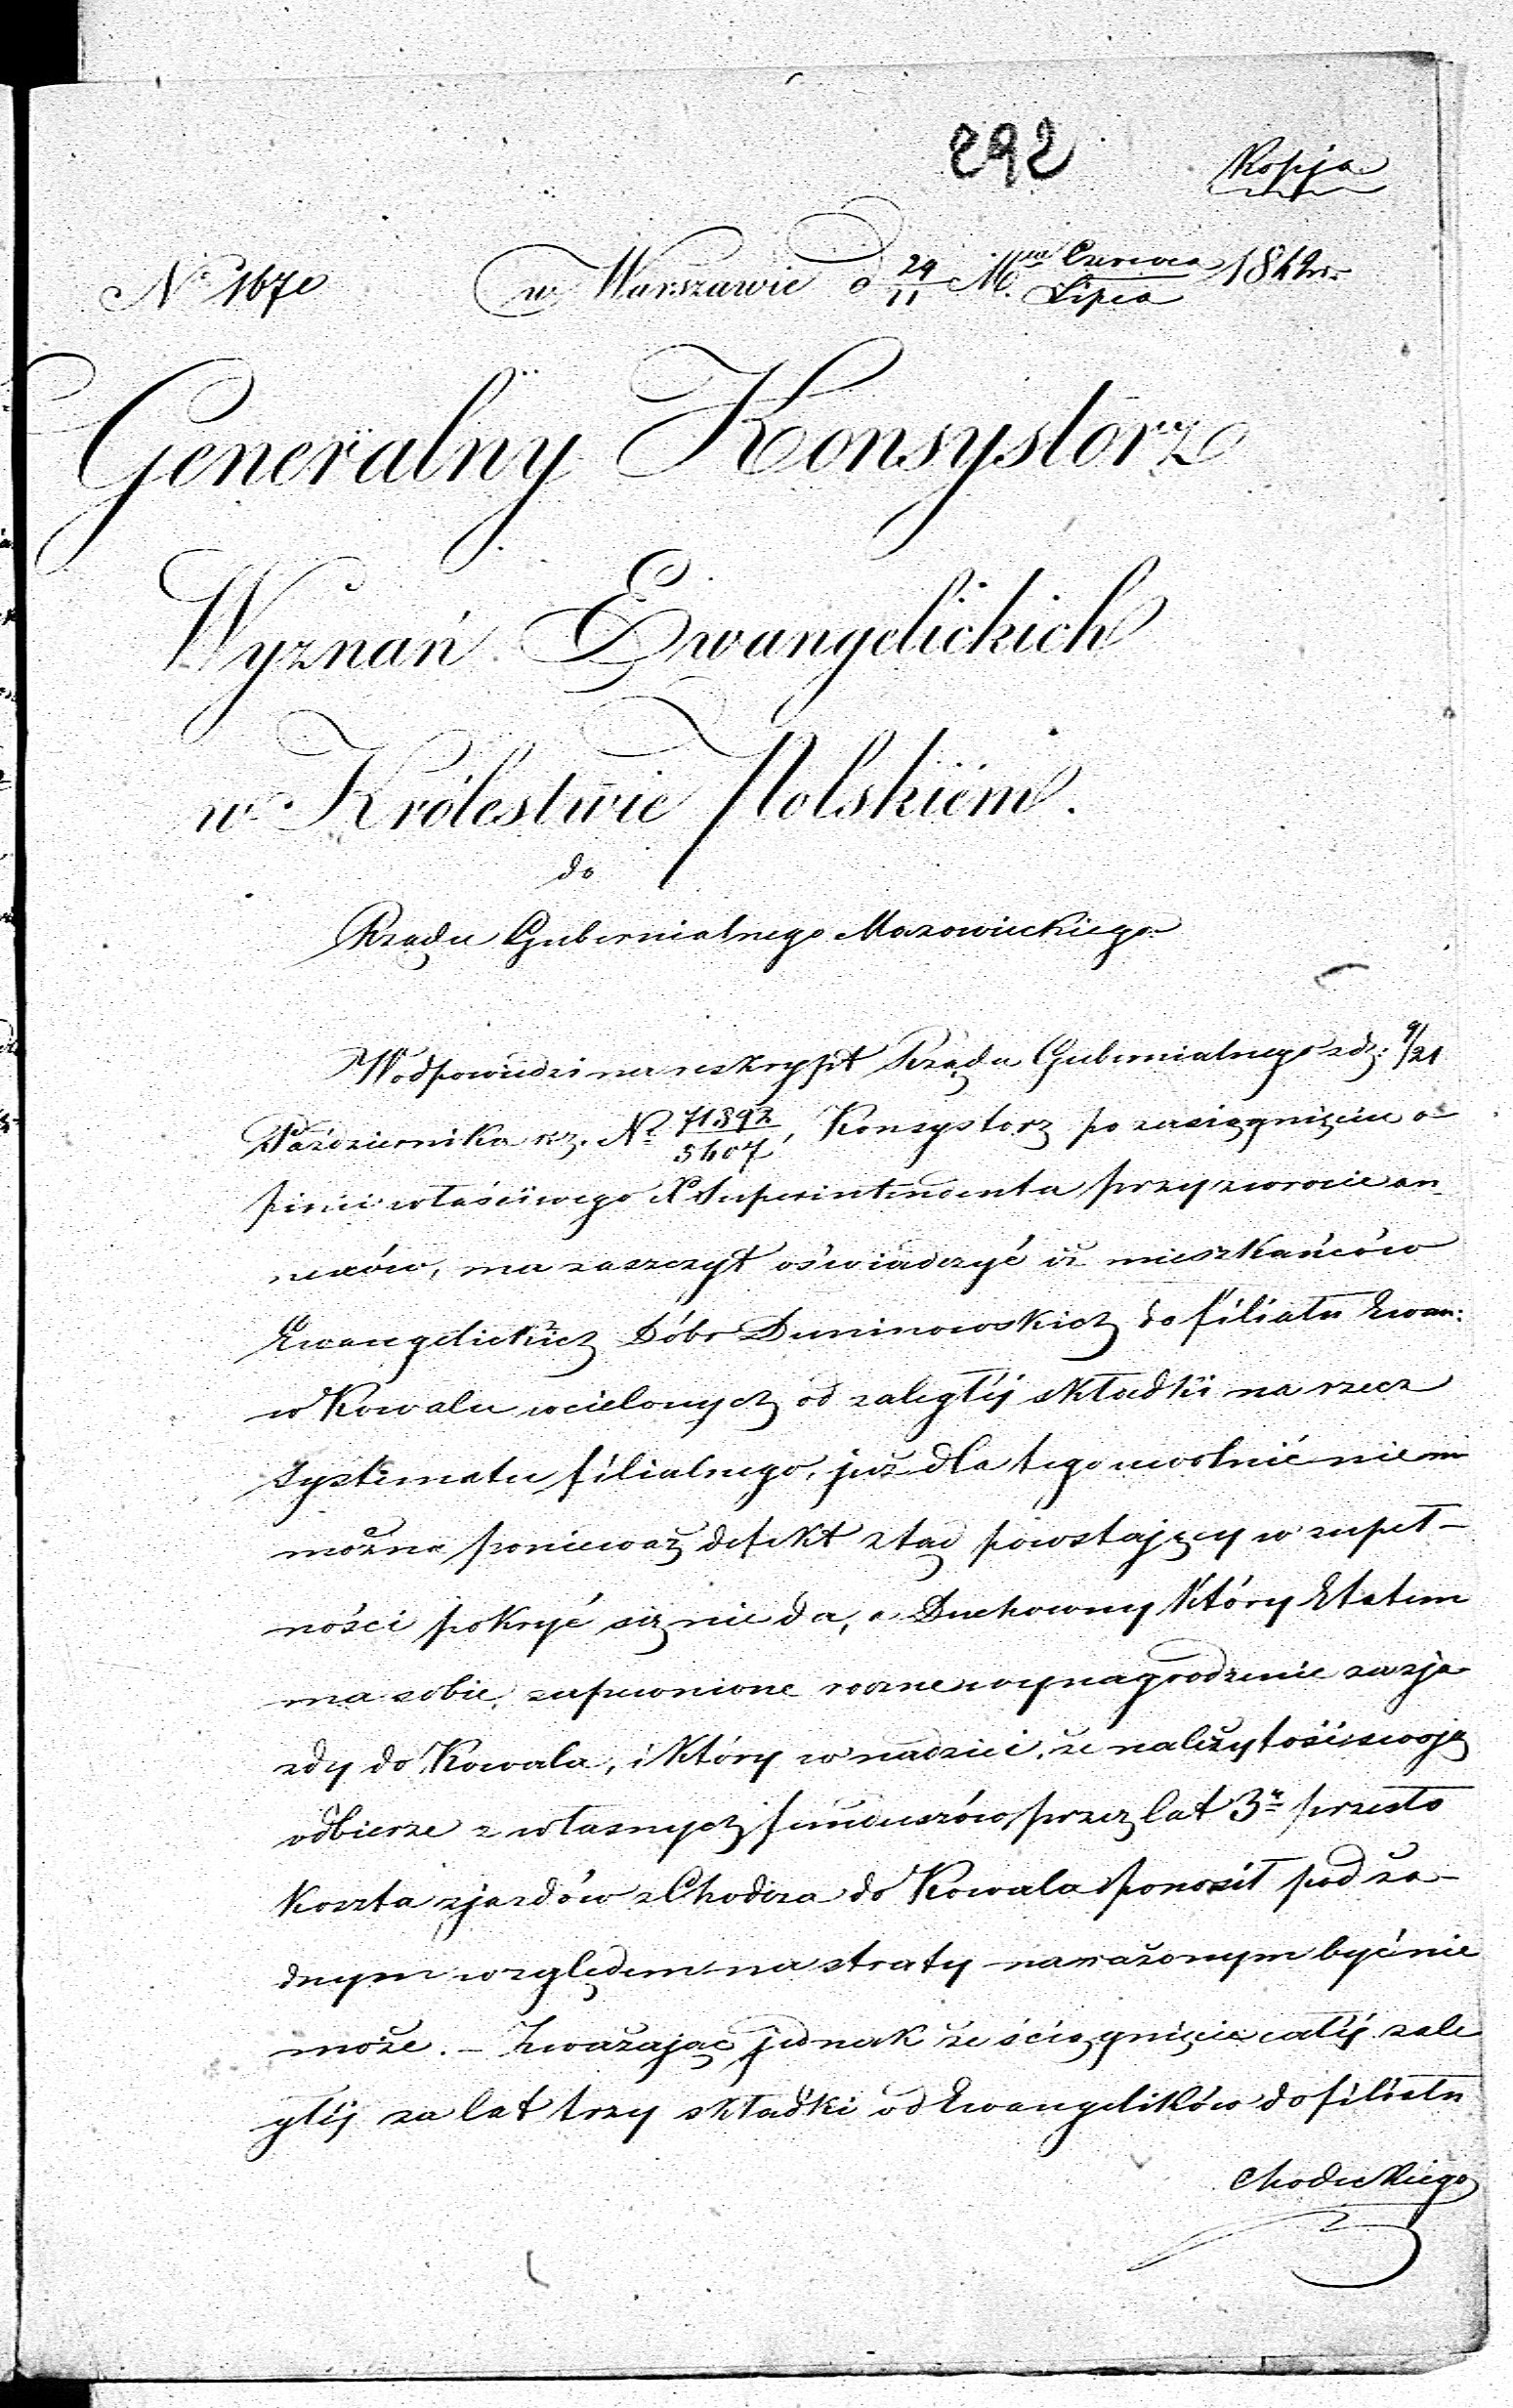 292
Kopja
N° 1670 w Warszawie d 29/11 M.ca Czerwca/Lipca 1842 r.
Generalny Konsystorz
Wyznań Ewangelickich
w Królestwie Polskiém.
do
Rządu Gubernialnego Mazowieckiego
W odpowiedzi na reskrypt Rządu Gubernialnego z d: 9/21
Października r.z. N° 71892/5407, Konsystorz po zasiągnięciu o-
pinii właściwego X Superintendenta przy zwrocie an-
nexów, ma zaszczyt oświadczyć iż mieszkańców
Ewangelickich Dóbr Duninowskich do filiału Ewan:
w Kowalu wcielonych od zaległéj składki na rzecz
systematu filialnego, już dla tego uwolnić nie
można ponieważ defekt ztąd powstający w zupeł-
ności pokryć się nie da, a Duchowny który Etatem
ma sobie zapewnione roczne wynagrodzenie za zja-
zdy do Kowala, i który w nadziei, że należytość swoją
odbierze z własnych funduszów przez lat 3 przeszło
koszta zjazdów z Chodcza do Kowala ponosił pod ża-
dnym względem na straty narażonym być nie
może. – Zważając jednak że ściągnięcie całéj zale
głéj za lat trzy składki od Ewangelików do filiału
Chodeckiego